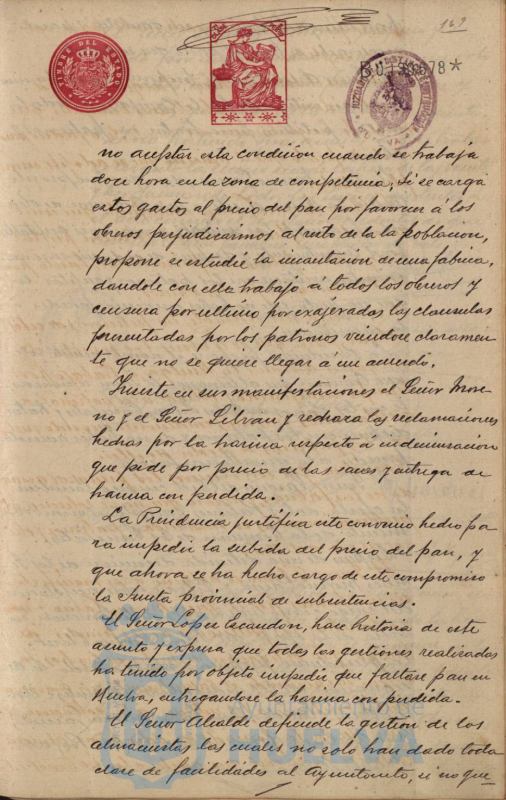 169
TIMBRE DEL ESTADO
no aceptar esta condición cuando se trabaja
doce hora en la zona de competencia, si se carga
estos gastos al precio del pan por favorecer á los
obreros perjudicaremos al resto de la la poblacion,
propone se estudie la incautación de una fabrica,
dandole con ella trabajo á todos los obreros y
censura por ultimo por exajeradas las clausulas
presentadas por los patronos viendose claramen-
te que no se quiere llegar á un acuerdo.
Insiste en sus manifestaciones el Señor More-
no y el Señor Silvan y rechaza las reclamaciones
hechas por la harina respecto á indemnizacion
que pide por precio de los sacos y entrega de
harina con perdida.
La Presidencia justifica este convenio hecho pa-
ra impedir la subida del precio del pan, y
que ahora se ha hecho cargo de este compromiso
la Junta provincial de subsistencias.
El Señor López Escandon, hace historia de este
asunto y expresa que todas las gestiones realizadas
ha tenido por objeto impedir que faltase pan en
Huelva, entregandose la harina con perdida.
El Señor Alcalde defiende la gestión de los
almacenistas los cuales no solo han dado toda
clase de facilidades al Ayuntamto, si no que
Ayuntamiento de
HUELVA